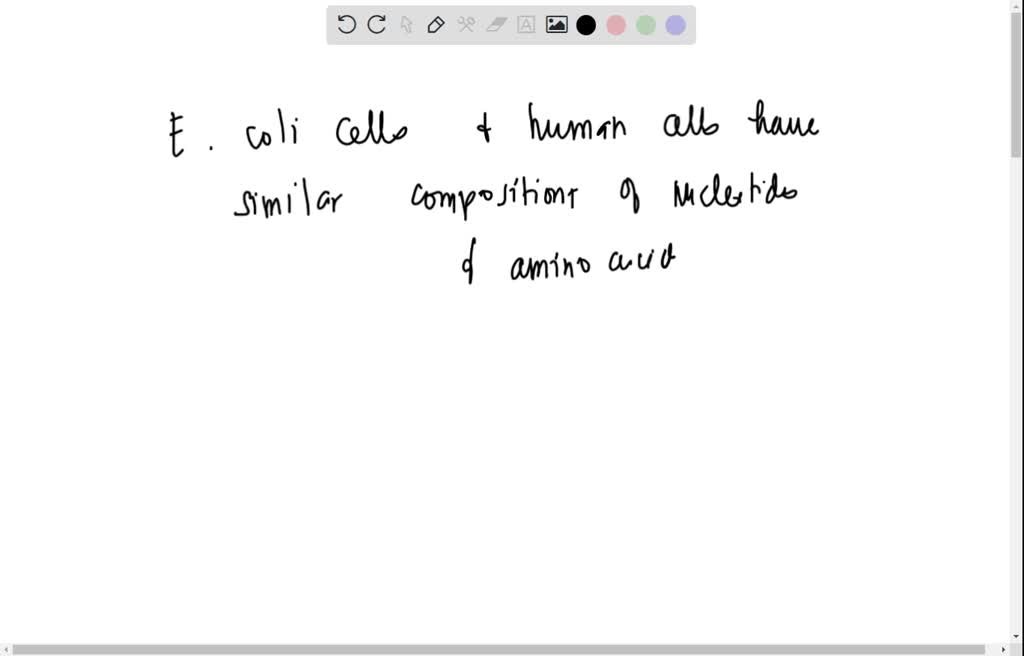 E. coli cells & human cells have
similar compositions of nucleotides
& amino acid